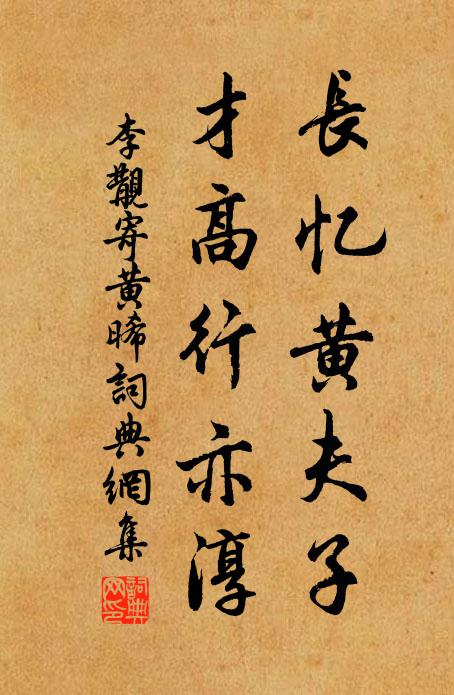 長忆黄夫子
才高行亦淳
李觀寄黄晞詞典網集
詞典网印